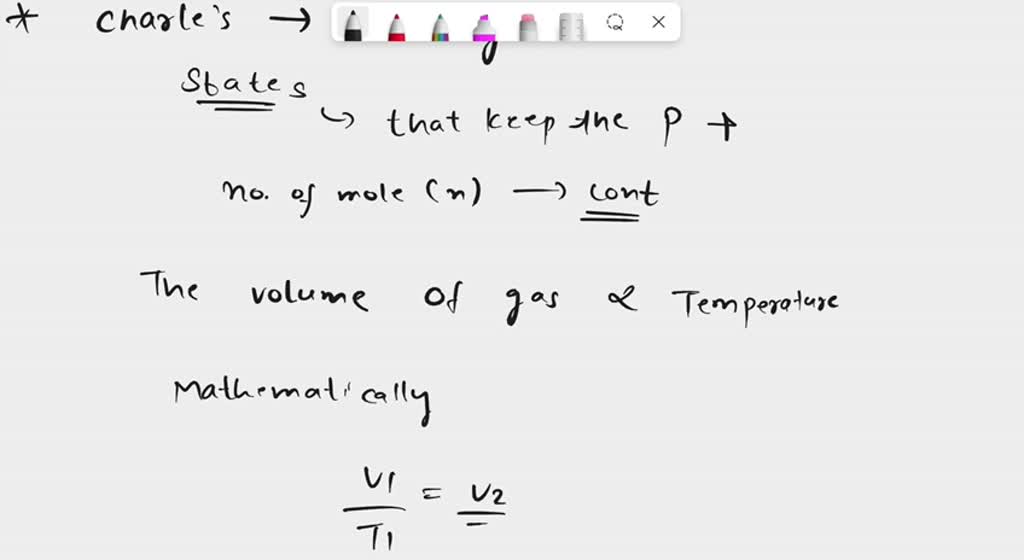 * Charle's →
States
↳ that keep the P +
no. of mole (n) → cont
The volume of gas ∝ Temperature
Mathematically
V1 = V2
T1